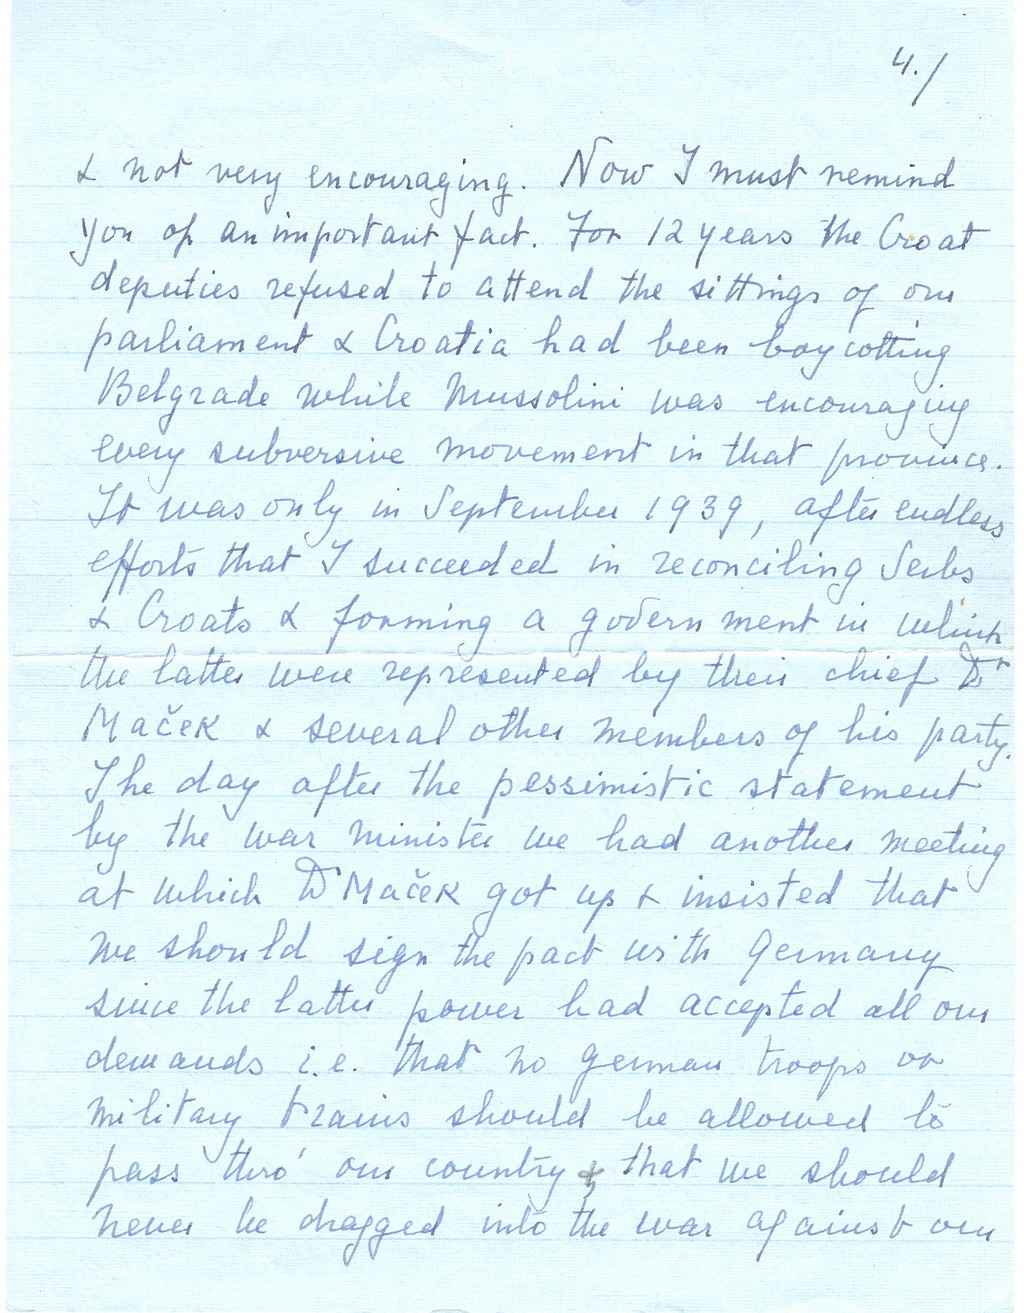 4./
& not very encouraging. Now I must remind
you of an important fact. For 12 years the Croat
deputies refused to attend the sittings of our
parliament & Croatia had been boycotting
Belgrade while Mussolini was encouraging
every subversive movement in that province.
It was only in September 1939, after endless
efforts that I succeeded in reconciling Serbs
& Croats & forming a government in which
the latter were represented by their chief Dr
Maček & several other members of his party.
The day after the pessimistic statement
by the war minister we had another meeting
at which Dr Maček got up & insisted that
we should sign the pact with Germany
since the latter power had accepted all our
demands i.e. that no German troops or
military trains should be allowed to
pass thro' our country & that we should
never be dragged into the war against our